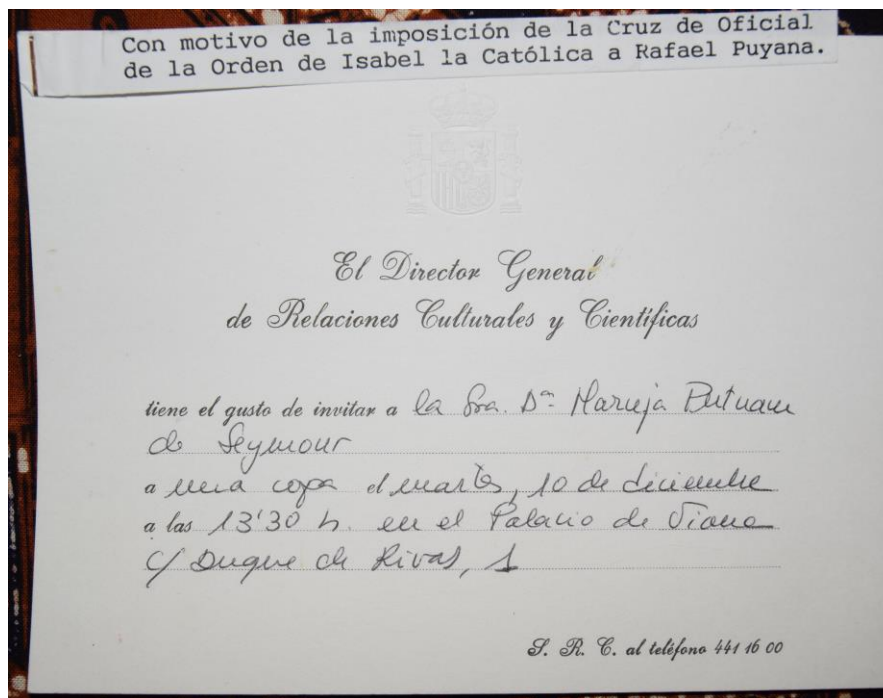 Con motivo de la imposición de la Cruz de Oficial
de la Orden de Isabel la Católica a Rafael Puyana.
El Director General
de Relaciones Culturales y Científicas
tiene el gusto de invitar a la Sra. Dª Maruja Putnam
de Seymour
a una copa el martes, 10 de diciembre
a las 13'30 h. en el Palacio de Viana
c/ Duque de Rivas, 1
S. R. C. al teléfono 441 16 00